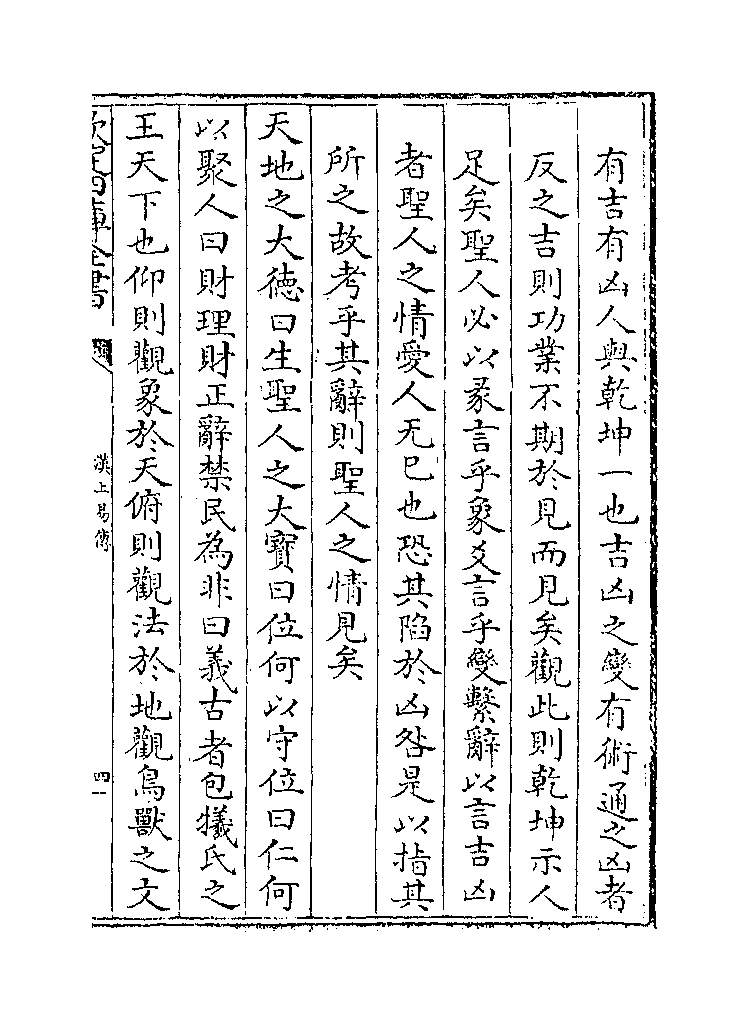 有吉有凶人與乾坤一也吉凶之變有術通之凶者
反之吉則功業不期於見而見矣觀此則乾坤示人
足矣聖人必以彖言乎象爻言乎變繫辭以言吉凶
者聖人之情愛人无已也恐其陷於凶咎是以指其
所之故考乎其辭則聖人之情見矣
天地之大德曰生聖人之大寶曰位何以守位曰仁何
以聚人曰財理財正辭禁民為非曰義古者包犧氏之
王天下也仰則觀象於天俯則觀法於地觀鳥獸之文
欽定四庫全書
漢上易傳
四一